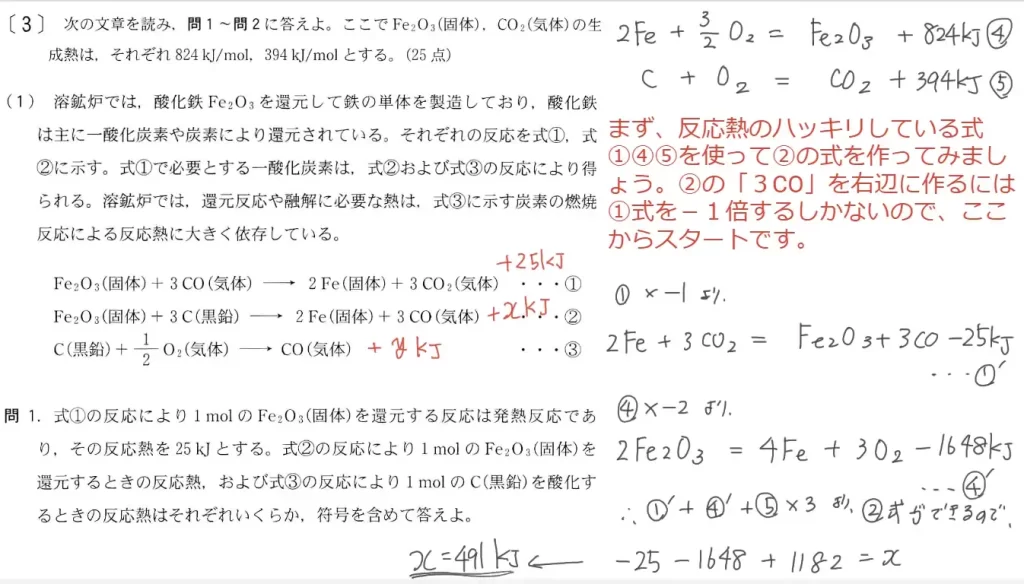 〔3〕 次の文章を読み，問1～問2に答えよ。ここでFe₂O₃(固体)，CO₂(気体)の生
成熱は，それぞれ824 kJ/mol，394 kJ/molとする。(25点)
(1) 溶鉱炉では，酸化鉄Fe₂O₃を還元して鉄の単体を製造しており，酸化鉄
は主に一酸化炭素や炭素により還元されている。それぞれの反応を式①，式
②に示す。式①で必要とする一酸化炭素は，式②および式③の反応により得
られる。溶鉱炉では，還元反応や融解に必要な熱は，式③に示す炭素の燃焼
反応による反応熱に大きく依存している。
Fe₂O₃(固体)＋3 CO(気体) ⟶ 2 Fe(固体)＋3 CO₂(気体) +25kJ ・・・①
Fe₂O₃(固体)＋3 C(黒鉛) ⟶ 2 Fe(固体)＋3 CO(気体) +x kJ ・・・②
C(黒鉛)＋1/2 O₂(気体) ⟶ CO(気体) + y kJ ・・・③
問1．式①の反応により1 molのFe₂O₃(固体)を還元する反応は発熱反応であ
り，その反応熱を25 kJとする。式②の反応により1 molのFe₂O₃(固体)を
還元するときの反応熱，および式③の反応により1 molのC(黒鉛)を酸化す
るときの反応熱はそれぞれいくらか，符号を含めて答えよ。
2Fe + 3/2 O₂ = Fe₂O₃ + 824kJ ④
C + O₂ = CO₂ + 394kJ ⑤
まず、反応熱のハッキリしている式
①④⑤を使って②の式を作ってみまし
ょう。②の「３CO」を右辺に作るには
①式を－１倍するしかないので、ここ
からスタートです。
① × -1 より.
2Fe + 3CO₂ = Fe₂O₃ + 3CO -25kJ
・・・①′
④ × -2 より.
2Fe₂O₃ = 4Fe + 3O₂ -1648kJ
・・・④′
∴ ①′ + ④′ + ⑤ × 3 より, ②式ができるので,
-25 - 1648 + 1182 = x
x = 491 kJ ←